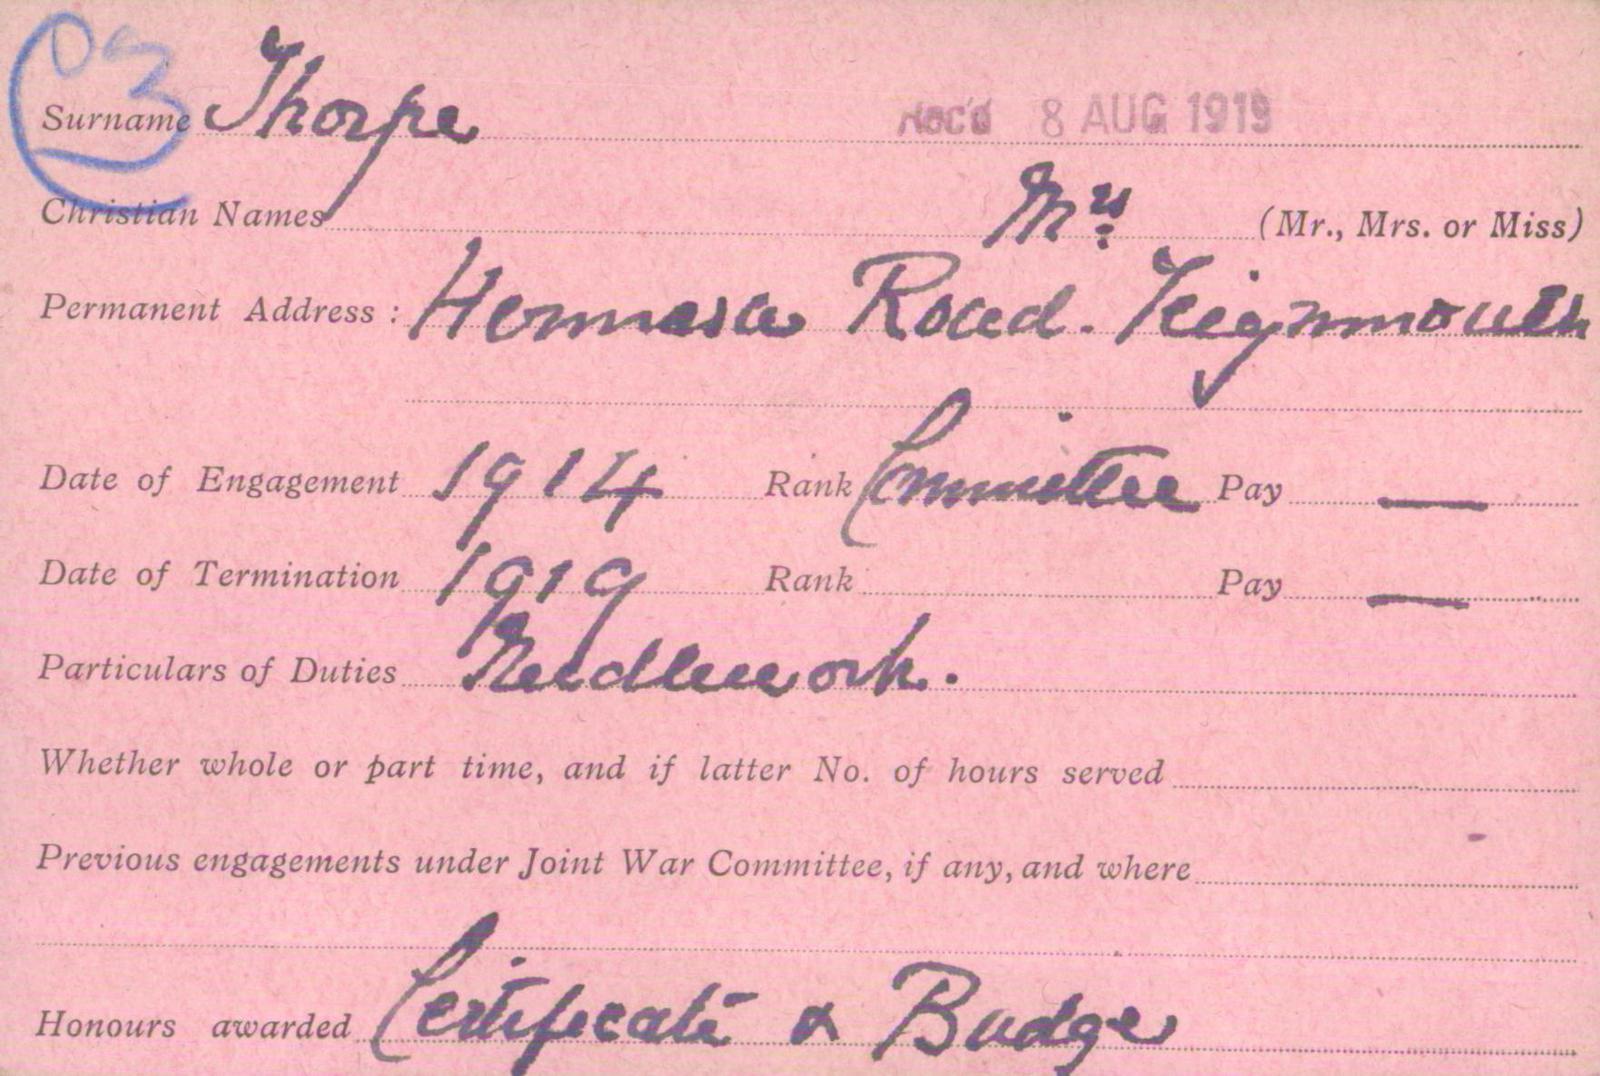 03
Surname Thorpe Rec'd 8 AUG 1919
Christian Names Mrs (Mr., Mrs. or Miss)
Permanent Address : Hermosa Road. Teignmouth
Date of Engagement 1914 Rank Committee Pay —
Date of Termination 1919 Rank Pay —
Particulars of Duties Needlework.
Whether whole or part time, and if latter No. of hours served
Previous engagements under Joint War Committee, if any, and where
Honours awarded Certificate & Badge